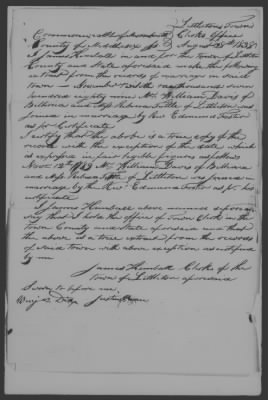 Littleton Town
Commonwealth of Massachusetts Clerks Office
County of Middlesex SS August 25th 1838
I James Kimball in and for the Town of Littleton
County and State aforesaid make the following
extract from the records of marriage in said
town – November 12th one thousand seven
hundred eighty nine Mr William Davis of
Billerica and Miss Rebecca Tuttle of Littleton was
joined in marriage by the Revd Edmund Foster
as per Certificate
I certify that the above is a true copy of the
record with the exception of the date which
is expressed in fair legible figures as follows
Nov. 12th 1789 Mr William Davis of Billerica
and Miss Rebecca Tuttle of Littleton was joined in
marriage by the Revd Edmund Foster as per his
certificate
I James Kimball above named depose and
say that I hold the office of Town Clerk in the
Town County and State aforesaid and that
the above is a true extract from the records
of said Town with above exception as certified
by me
James Kimball Clerk of the
Town of Littleton aforesaid
Sworn to before me
Justice